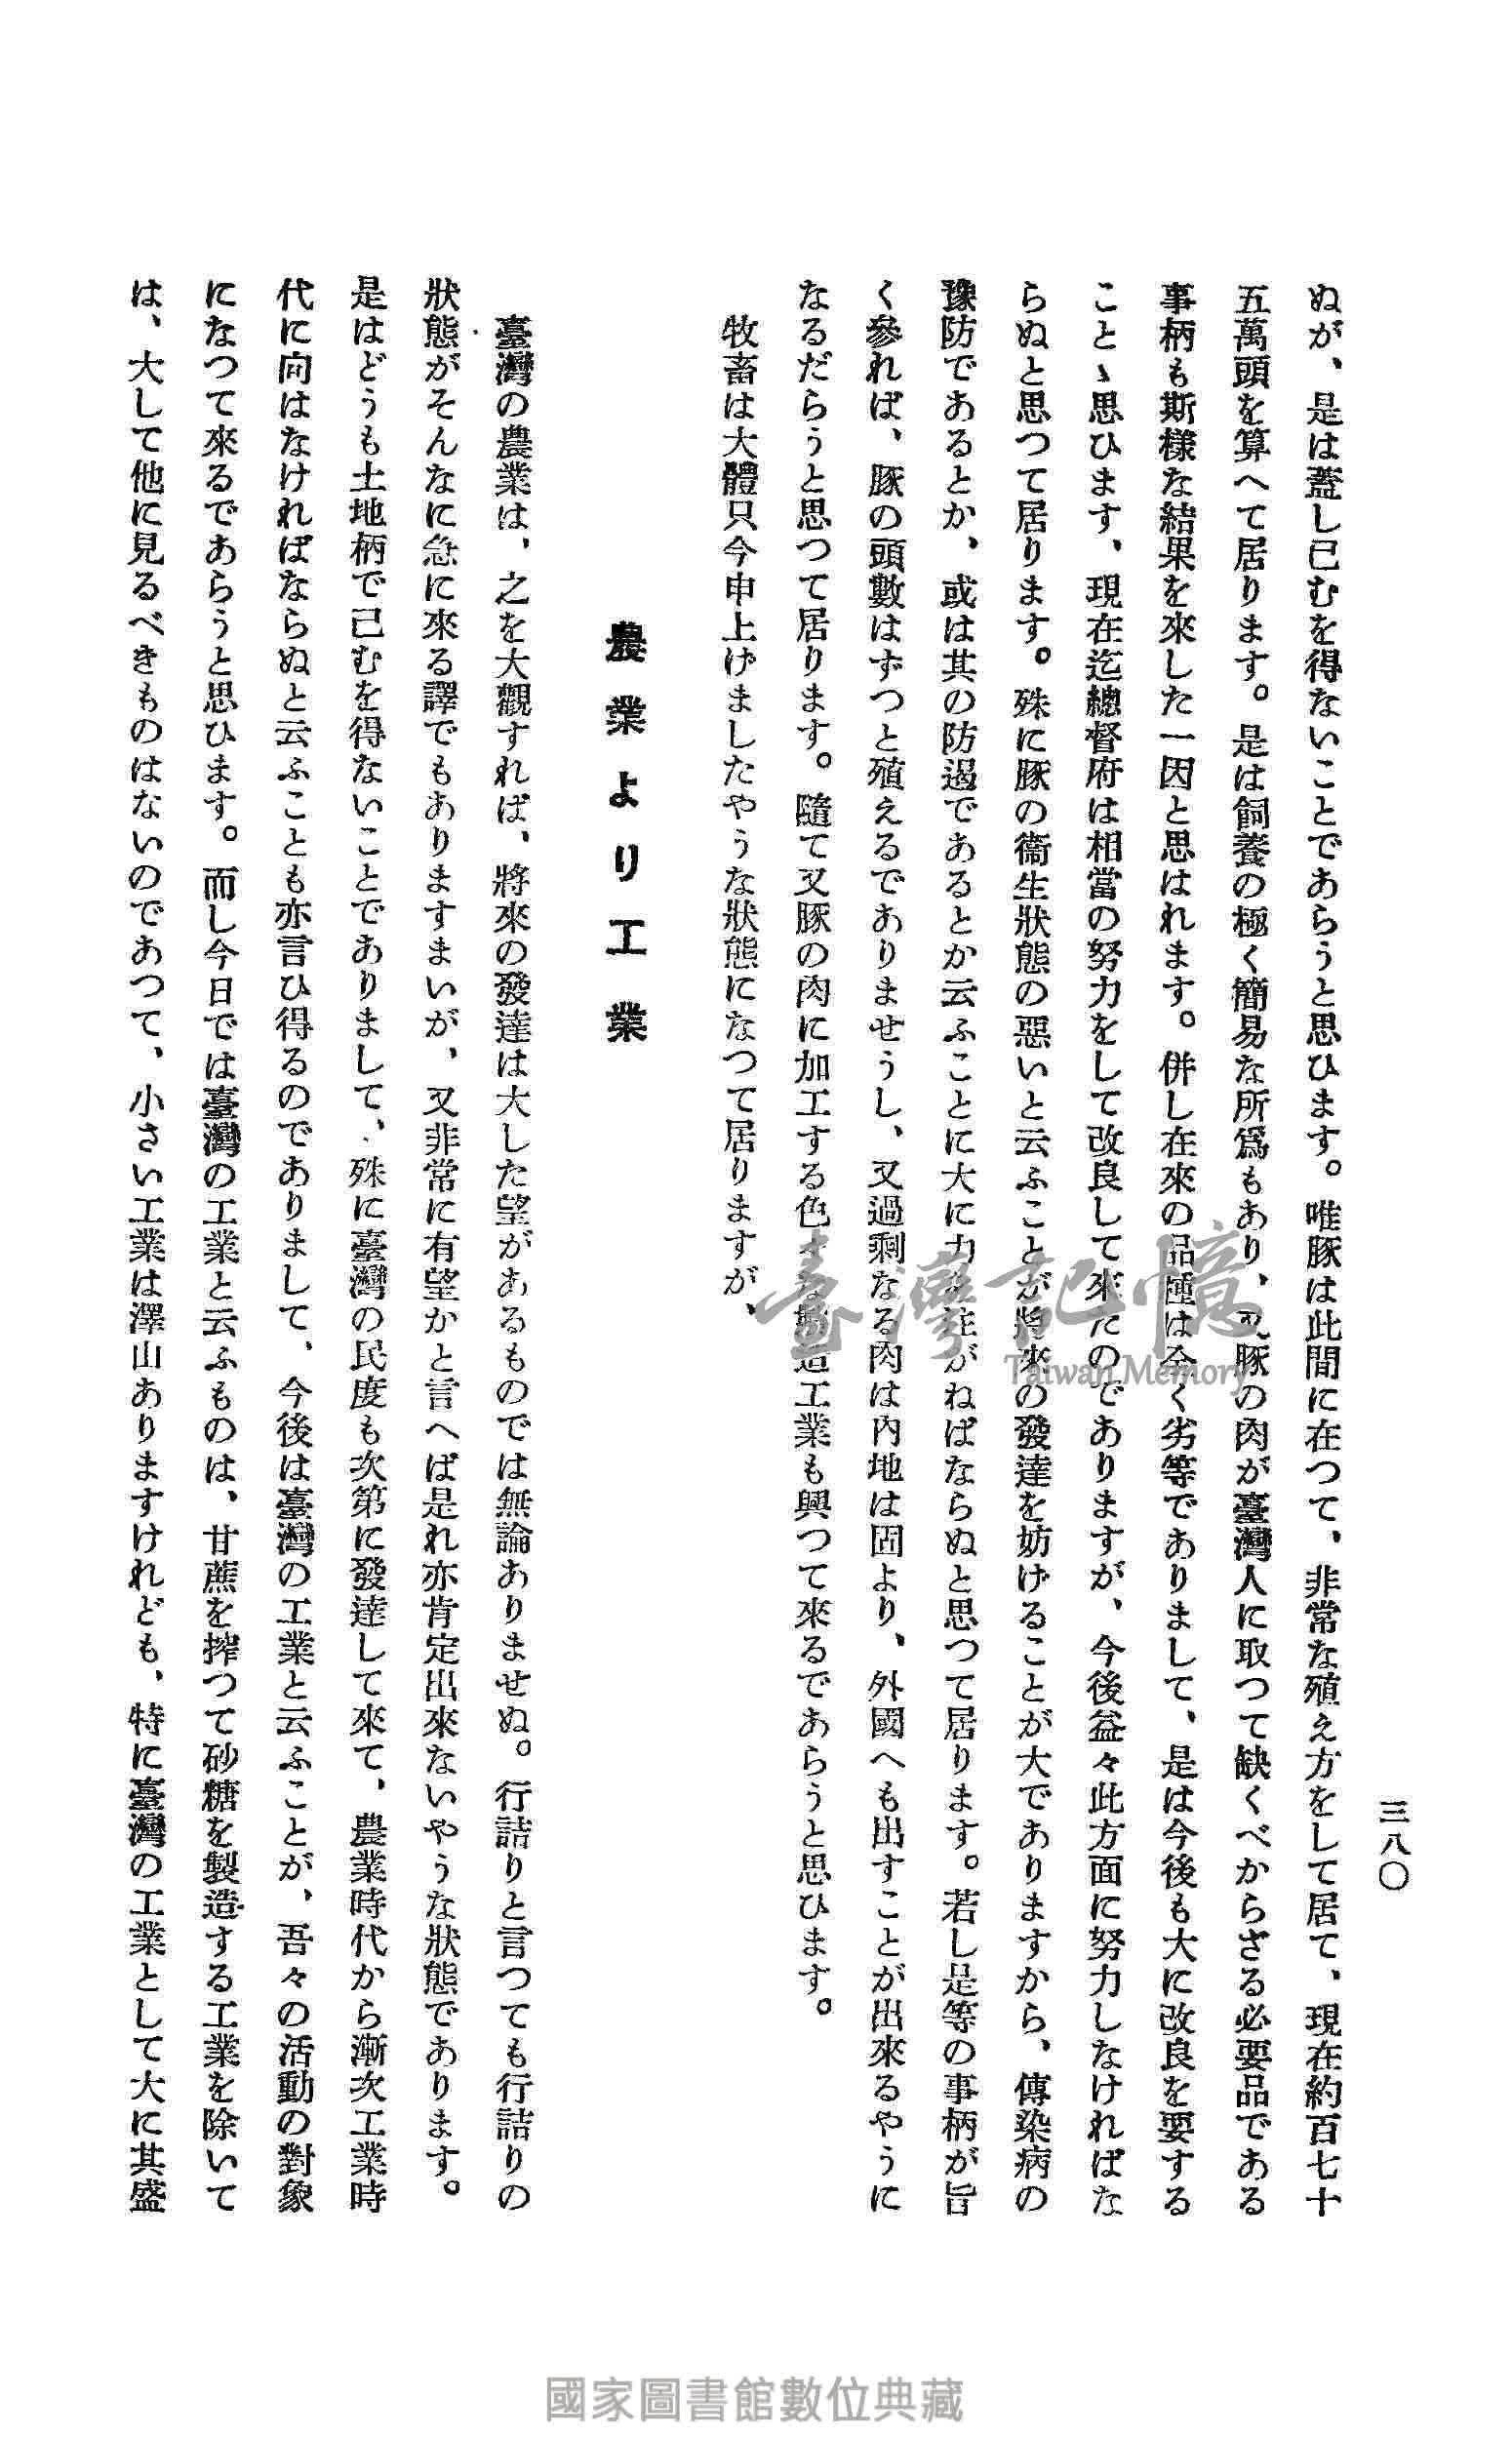 三八〇
ぬが、是は蓋し已むを得ないことであらうと思ひます。唯豚は此間に在つて、非常な殖え方をして居て、現在約百七十
五萬頭を算へて居ります。是は飼養の極く簡易な所爲もあり、又豚の肉が臺灣人に取つて缺くべからざる必要品である
事柄も斯樣な結果を來した一因と思はれます。併し在來の品種は全く劣等でありまして、是は今後も大に改良を要する
ことゝ思ひます、現在迄總督府は相當の努力をして改良して來たのでありますが、今後益々此方面に努力しなければな
らぬと思つて居ります。殊に豚の衞生狀態の惡いと云ふことが將來の發達を妨げることが大でありますから、傳染病の
豫防であるとか、或は其の防遏であるとか云ふことに大に力を注がねばならぬと思つて居ります。若し是等の事柄が旨
く參れば、豚の頭數はずつと殖えるでありませうし、又過剩なる肉は內地は固より、外國へも出すことが出來るやうに
なるだらうと思つて居ります。隨て又豚の肉に加工する色々な製造工業も興つて來るであらうと思ひます。
牧畜は大體只今申上げましたやうな狀態になつて居りますが、
農業より工業
臺灣の農業は、之を大觀すれば、將來の發達は大した望があるものでは無論ありませぬ。行詰りと言つても行詰りの
狀態がそんなに急に來る譯でもありますまいが、又非常に有望かと言へば是れ亦肯定出來ないやうな狀態であります。
是はどうも土地柄で已むを得ないことでありまして、殊に臺灣の民度も次第に發達して來て、農業時代から漸次工業時
代に向はなければならぬと云ふことも亦言ひ得るのでありまして、今後は臺灣の工業と云ふことが、吾々の活動の對象
になつて來るであらうと思ひます。而し今日では臺灣の工業と云ふものは、甘蔗を搾つて砂糖を製造する工業を除いて
は、大して他に見るべきものはないのであつて、小さい工業は澤山ありますけれども、特に臺灣の工業として大に其盛
臺灣記憶
Taiwan Memory
國家圖書館數位典藏